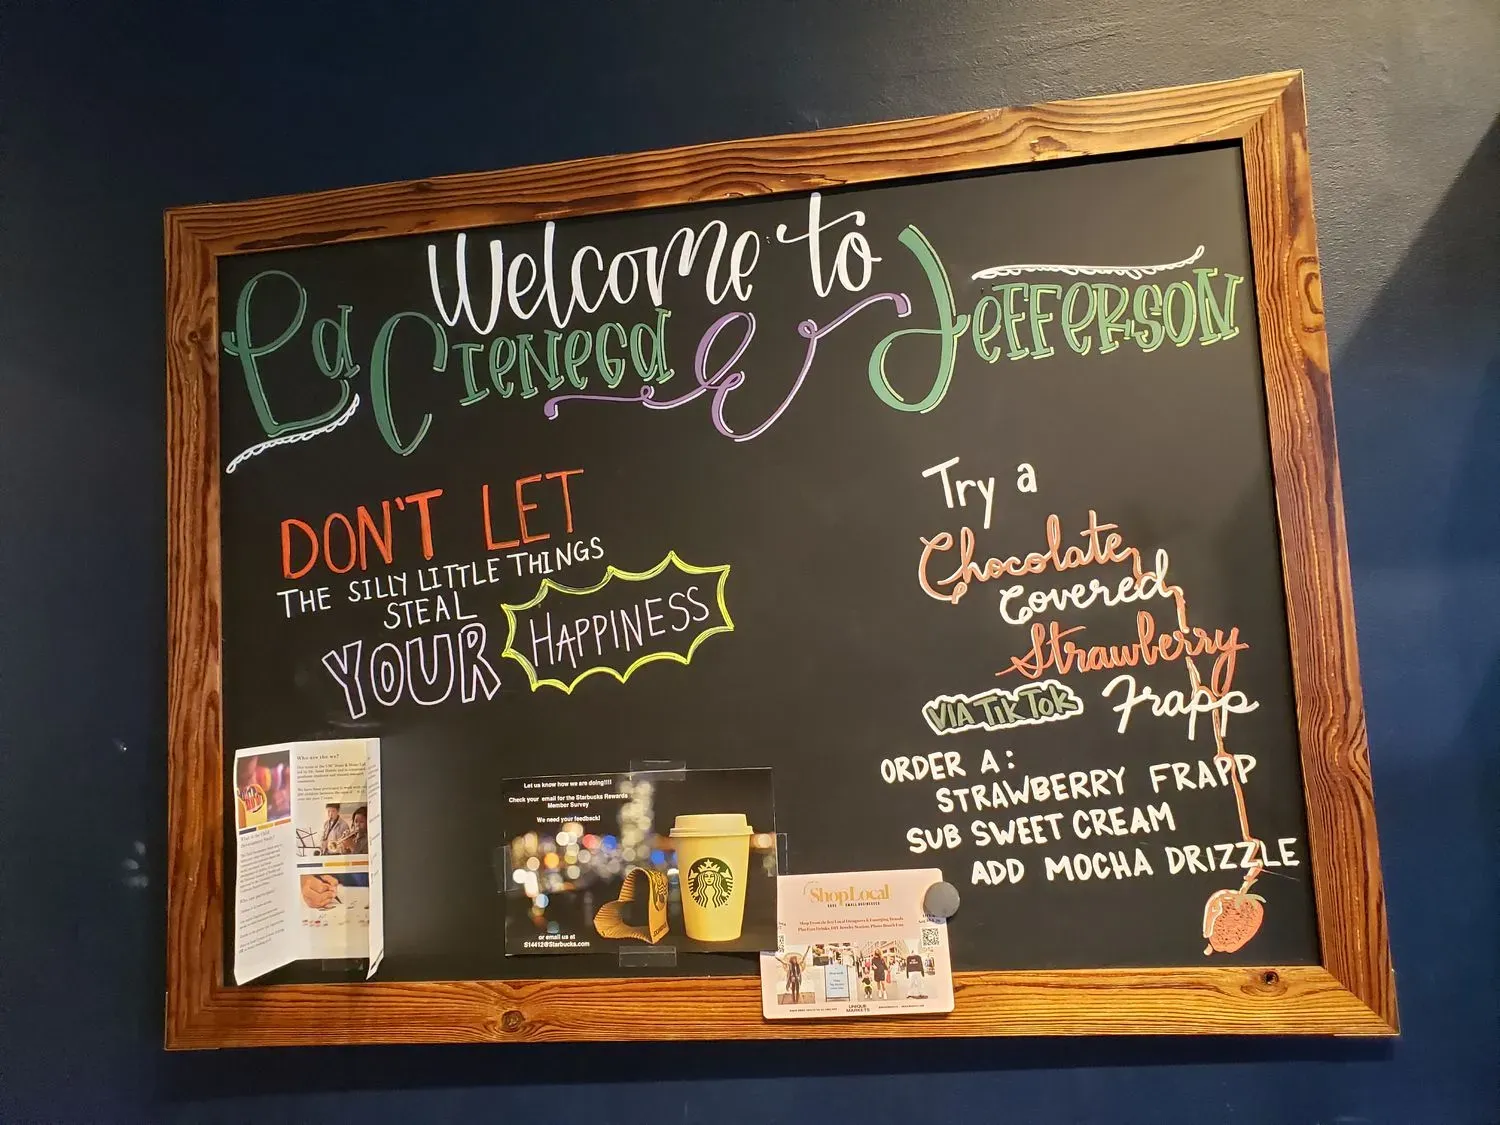 Welcome to
La Cienega & Jefferson
DON'T LET
THE SILLY LITTLE THINGS
STEAL
YOUR HAPPINESS
Try a
Chocolate
Covered
Strawberry
VIA TIKTOK Frapp
ORDER A:
STRAWBERRY FRAPP
SUB SWEET CREAM
ADD MOCHA DRIZZLE
Who are the we?
What is the Child
Development Study?
Let us know how we are doing!!!!
Check your email for the Starbucks Rewards
Member Survey
We need your feedback!
or email us at
S14412@Starbucks.com
Shop Local
SMALL BUSINESSES
UNIQUE
MARKETS